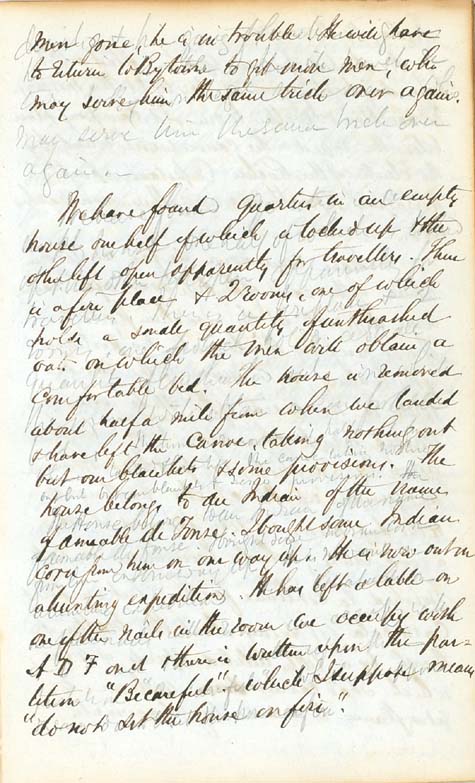 men gone, he is in trouble. He will have
to return to Bytown to get more men, who
may serve him the same trick over again.
may serve him the same trick over
again.
We have found quarters in an empty
house one half of which is locked up & the
other left open apparently for travellers. There
is a fire place & 2 rooms, one of which
holds a small quantity of unthrashed
oats on which the men will obtain a
comfortable bed. The house is removed
about half a mile from where we landed
& have left the canoe, taking nothing out
but our blankets & some provisions. The
house belongs to an Indian of the name
of Amable de Fonse. I bought some Indian
corn from him on our way up. He is now out on
a hunting expedition. He has left a table on
one of the nails in the room we occupy with
A D F on it & there is written upon the par=
tition "Be careful" which I suppose means
"do not set the house on fire".